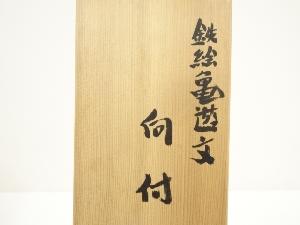 鉄絵亀遊文
向付